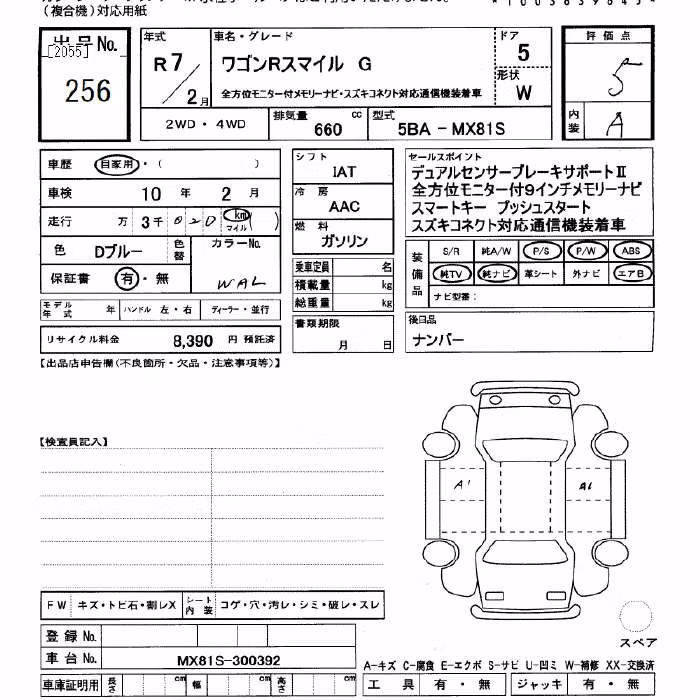 (複合機)対応用紙
出品No.
[2055]
256
年式
R7/2月
車名・グレード
ワゴンRスマイル G
全方位モニター付メモリーナビ・スズキコネクト対応通信機装着車
ドア
5
形状
W
評価点
5
内装
A
2WD・4WD
排気量 660 cc
型式 5BA - MX81S
車歴 自家用・( )
車検 10 年 2 月
走行 万 3千 020 km マイル ( )
色 Dブルー 色替
カラーNo.
WAL
保証書 有・無
モデル年式 年 ハンドル 左・右 ディーラー・並行
リサイクル料金 8,390 円 預託済
シフト
IAT
冷房
AAC
燃料
ガソリン
乗車定員 名
積載量 kg
総重量 kg
書類期限
月 日
セールスポイント
デュアルセンサーブレーキサポートⅡ
全方位モニター付9インチメモリーナビ
スマートキー プッシュスタート
スズキコネクト対応通信機装着車
装備品
S/R 純A/W P/S P/W ABS
純TV 純ナビ 革シート 外ナビ エアB
ナビ型番:
後日品
ナンバー
【出品店申告欄(不良箇所・欠品・注意事項等)】
【検査員記入】
A1
A1
FW キズ・トビ石・割レX
シート内装 コゲ・穴・汚レ・シミ・破レ・スレ
スペア
登録No.
車台No. MX81S-300392
車庫証明用 長さ cm 幅 cm 高さ cm
A-キズ C-腐食 E-エクボ S-サビ U-凹ミ W-補修 XX-交換済
工具 有・無 ジャッキ 有・無